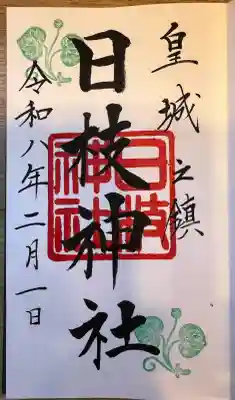 皇城之鎮
日枝神社
日枝神社
令和八年二月一日